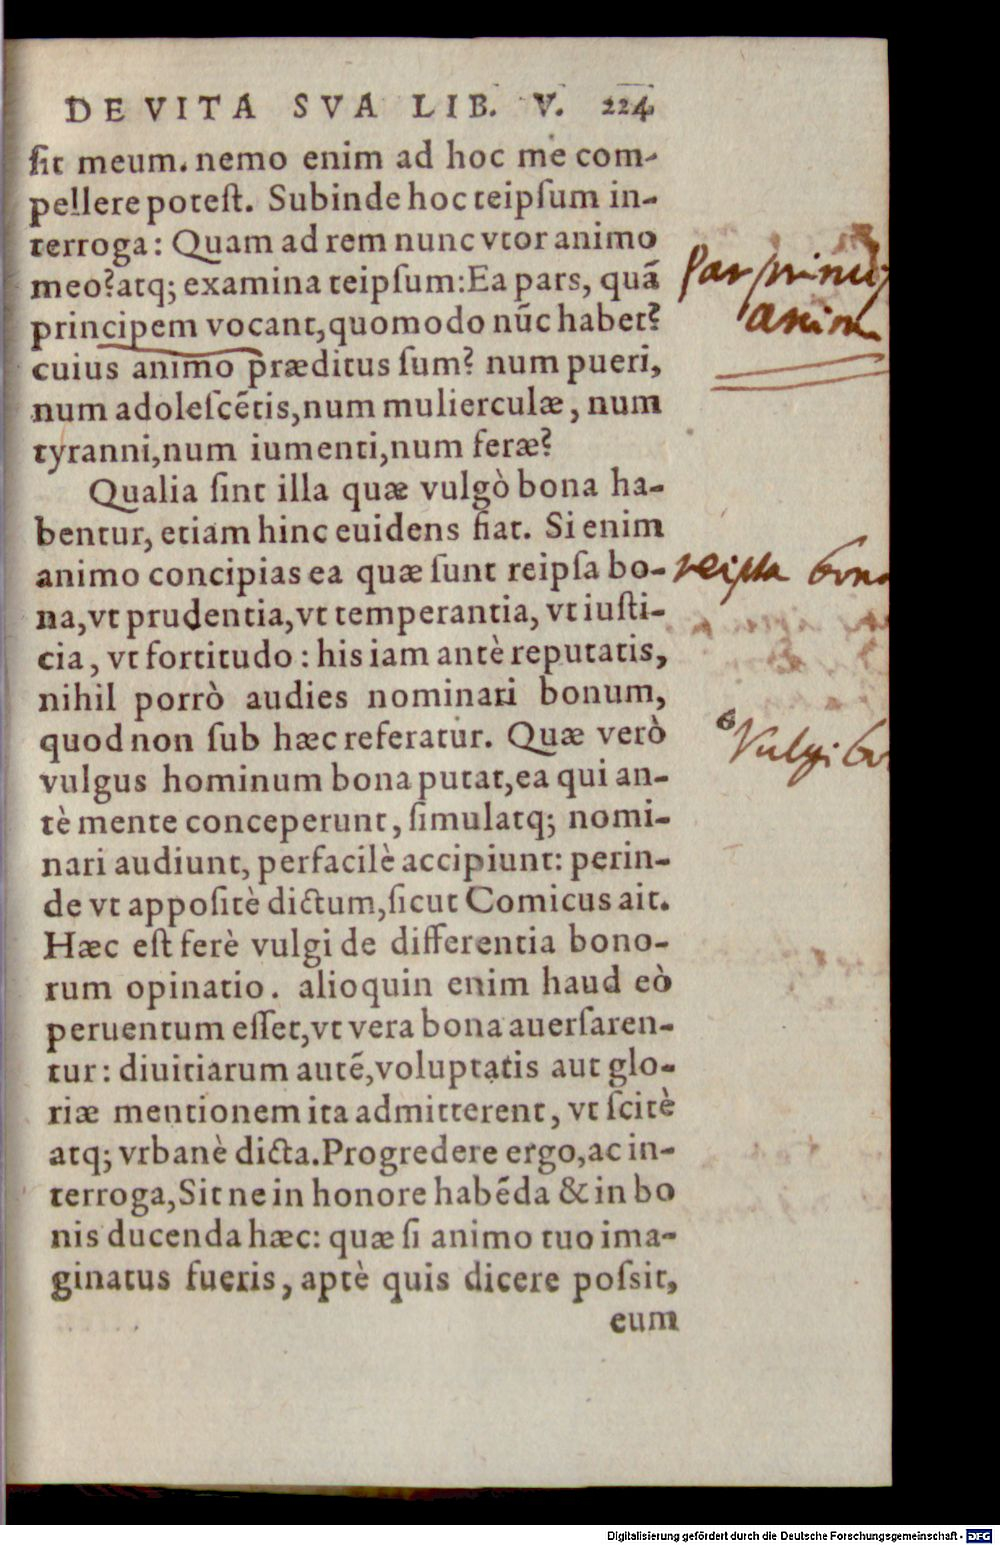 DE VITA SVA LIB. V. 224
ſit meum. nemo enim ad hoc me com-
pellere poteſt. Subinde hoc teipſum in-
terroga: Quam ad rem nunc vtor animo
meo? atq; examina teipſum: Ea pars, quã
principem vocant, quomodo nũc habet?
cuius animo præditus ſum? num pueri,
num adoleſcẽtis, num mulierculæ, num
tyranni, num iumenti, num feræ?
Qualia ſint illa quæ vulgò bona ha-
bentur, etiam hinc euidens fiat. Si enim
animo concipias ea quæ ſunt reipſa bo-
na, vt prudentia, vt temperantia, vt iuſti-
cia, vt fortitudo: his iam antè reputatis,
nihil porrò audies nominari bonum,
quod non ſub hæc referatur. Quæ verò
vulgus hominum bona putat, ea qui an-
tè mente conceperunt, ſimulatq; nomi-
nari audiunt, perfacilè accipiunt: perin-
de vt appoſitè dictum, ſicut Comicus ait.
Hæc eſt ferè vulgi de differentia bono-
rum opinatio. alioquin enim haud eò
peruentum eſſet, vt vera bona auerſaren-
tur: diuitiarum autẽ, voluptatis aut glo-
riæ mentionem ita admitterent, vt ſcitè
atq; vrbanè dicta. Progredere ergo, ac in-
terroga, Sit ne in honore habẽda & in bo
nis ducenda hæc: quæ ſi animo tuo ima-
ginatus fueris, aptè quis dicere poſsit,
eum
Par princi
anim
reipſa bona
Vulgi bo
Digitalisierung gefördert durch die Deutsche Forschungsgemeinschaft - DFG